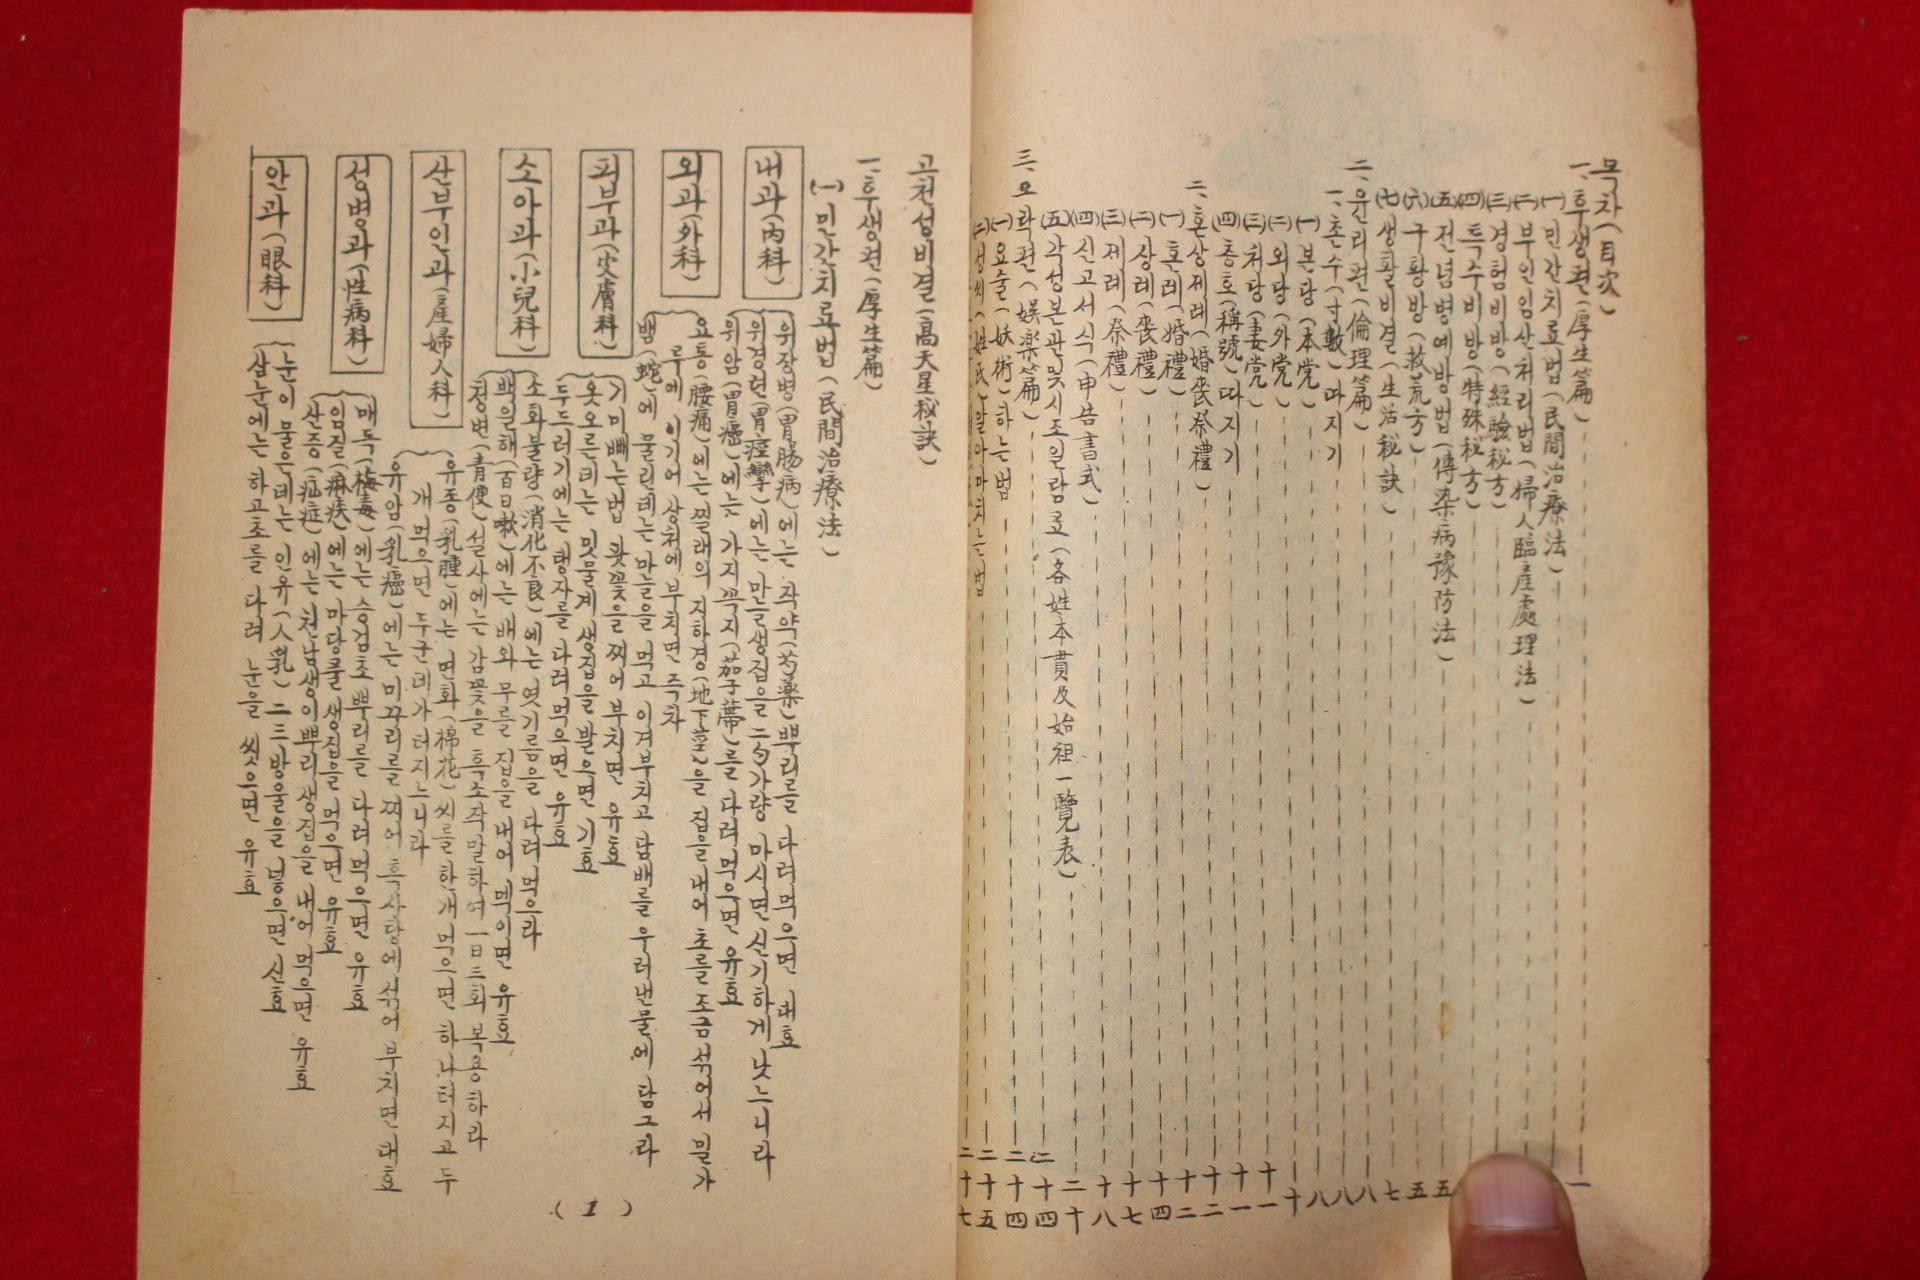 목차(目次)
一. 후생편(厚生篇) 一
(一) 민간치료법(民間治療法)
(二) 부인임산처리법(婦人臨産處理法)
(三) 경험비방(經驗秘方)
(四) 특수비방(特殊秘方)
(五) 전념병예방법(傳染病豫防法) 五
(六) 구황방(救荒方) 五
(七) 생활비결(生活秘訣) 七
二. 윤리편(倫理篇) 八
一. 촌수(寸數)따지기 八
(一) 본당(本党) 八
(二) 외당(外党) 十
(三) 처당(妻党) 十一
(四) 총호(稱號)따지기 十一
二. 혼상제례(婚喪祭禮) 十二
(一) 혼례(婚禮) 十二
(二) 상례(喪禮) 十四
(三) 제례(祭禮) 十七
(四) 신고서식(申告書式) 十八
(五) 각성본관및시조일람표(各姓本貫及始祖一覽表) 二十
三. 오락편(娯楽篇) 二十四
(一) 요술(妖術)하는법 二十四
(二) 성씨(姓氏)알아마치는법 二十五
二十七
고천성비결(高天星秘訣)
一. 후생편(厚生篇)
(一) 민간치료법(民間治療法)
내과(內科)
위장병(胃腸病)에는 작약(芍藥)뿌리를 다려먹으면 대효
위경련(胃痙攣)에는 만늘생집을 二勺가량 마시면 신기하게 낫느니라
위암(胃癌)에는 가지꼭지(茄子蒂)를 다려먹으면 유효
외과(外科)
요통(腰痛)에는 찔래의 지하경(地下莖)을 집을내어 초를 조금 섞어서 밀가
루에 이기어 상처에 부치면 즉차
뱀(蛇)에 물린데는 마늘을 먹고 이겨부치고 담배를 우려낸물에 담그라
피부과(皮膚科)
기미빼는법 팟꽃을 찌어 부치면 유효
옷오른데는 밋물게 생집을 발으면 기효
두드러기에는 탱자를 다려먹으면 유효
소아과(小兒科)
소화불량(消化不良)에는 엿기름을 다려먹으라
백일해(百日嗽)에는 배와 무를 집을내어 멕이면 유효
청변(靑便)설사에는 감꽃을 흑소작말하여 一日三회 복용하라
산부인과(產婦人科)
유종(乳腫)에는 면화(棉花)씨를 한개 먹으면 하나터지고 두
개 먹으면 두군데가 터지느니라
유암(乳癌)에는 미꾸리를 찌어 흑사탕에 섞어 부치면 대효
성병과(性病科)
매독(梅毒)에는 승검초 뿌리를 다려먹으면 유효
임질(痳疾)에는 마당쿨 생집을 먹으면 유효
산증(疝症)에는 천남생이뿌리 생집을 내어 먹으면 유효
안과(眼科)
눈이 물은데는 인유(人乳) 二三방울을 넣으면 신효
삼눈에는 하고초를 다려 눈을 씻으면 유효
(1)